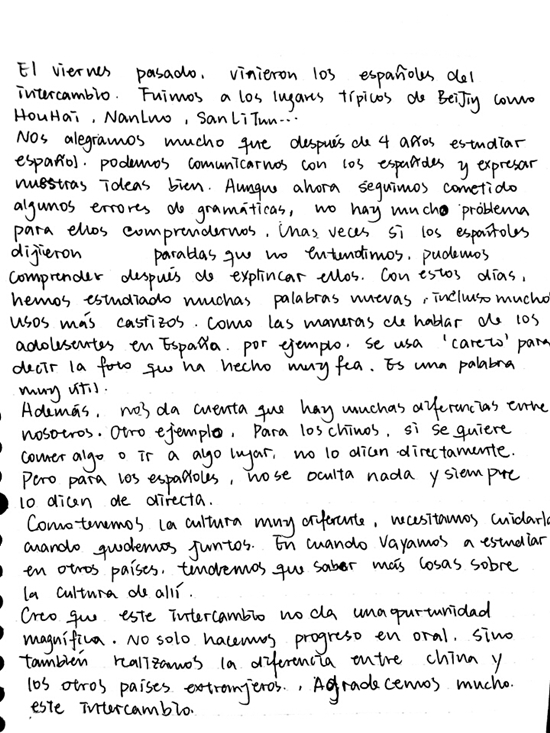 El viernes pasado, vinieron los españoles del
intercambio. Fuimos a los lugares típicos de BeiJiy como
HouHai, NanLuo, SanLiTun...
Nos alegramos mucho que después de 4 años estudiar
español. podemos comunicarnos con los españoles y expresar
nuestras ideas bien. Aunque ahora seguimos cometido
algunos errores de gramáticas, no hay mucho problema
para ellos comprendernos. Unas veces si los españoles
dijieron parablas que no entendimos, pudemos
comprender después de explincar ellos. Con estos días,
hemos estudiado muchas palabras nuevas, incluso mucho
usos más castizos. como las maneras de hablar de los
adolesentes en España. por ejemplo. se usa 'careto' para
decir la foto que ha hecho muy fea. Es una palabra
muy útil.
Además, nos da cuenta que hay muchas diferencias entre
nosotros. Otro ejemplo, Para los chinos, si se quiere
comer algo o ir a algo lugar, no lo dicen directamente.
Pero para los españoles, no se oculta nada y siempre
lo dicen de directa.
Como tenemos la cultura muy diferente, necesitamos cuidarlo
cuando quedemos juntos. En cuando vayamos a estudiar
en otros países. tendremos que saber más cosas sobre
la cultura de allí.
Creo que este intercambio no da una ourtunidad
magnífica. No solo hacemos progreso en oral. sino
también realizamos la diferencia entre china y
los otros países extranjeros., Agradecemos mucho.
este intercambio.